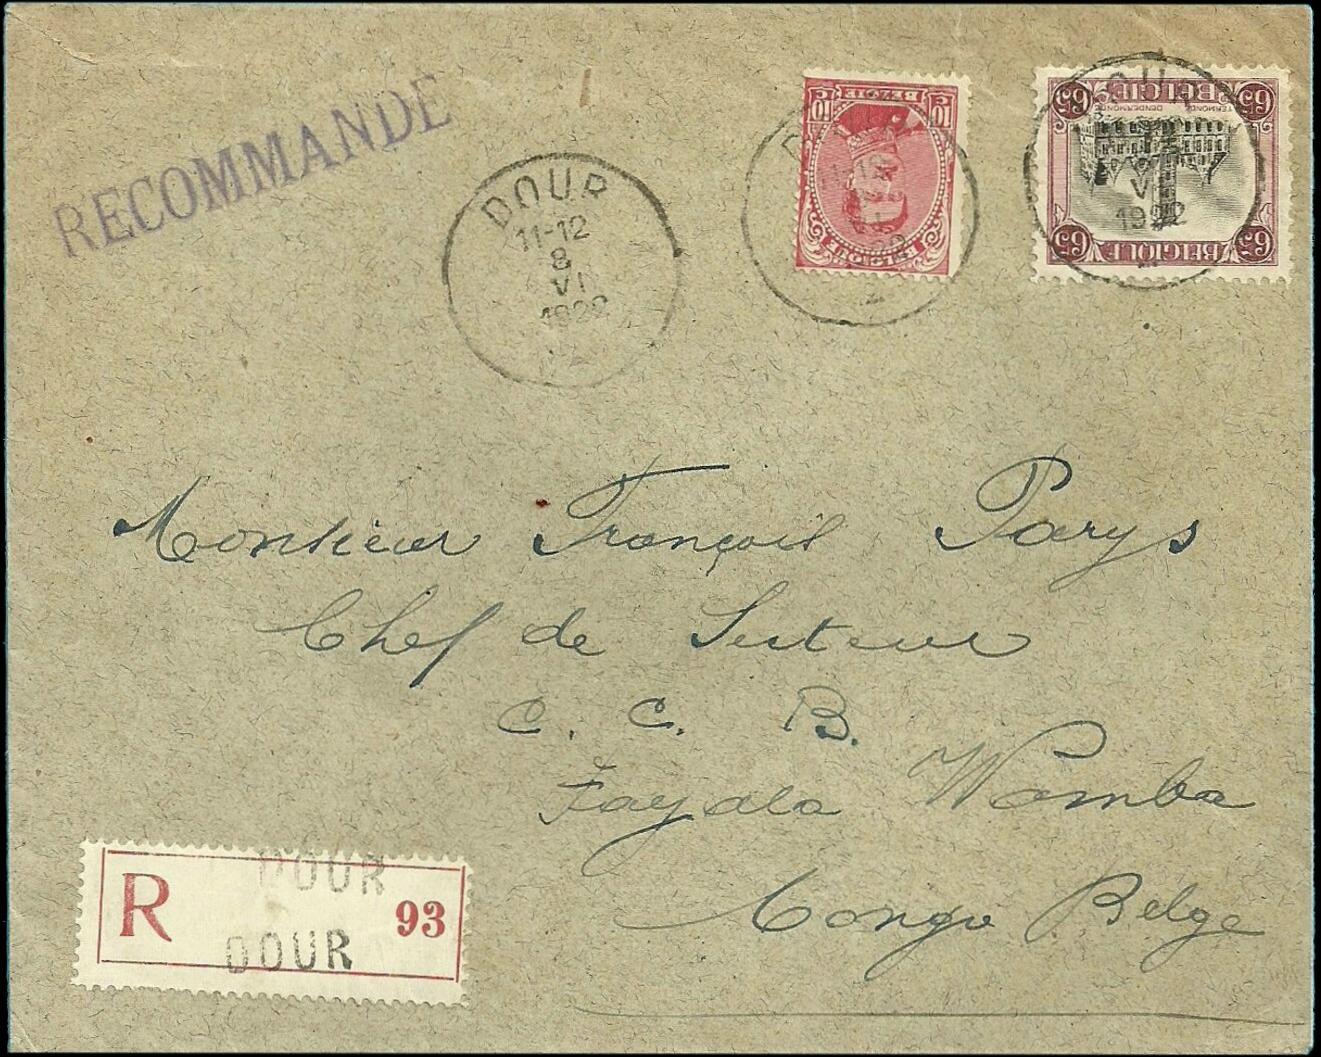 RECOMMANDE
DOUR
11-12
8
VI
1922
10 C BELGIE 10 C
BELGIQUE
65 BELGIE 65
TERMONDE DENDERMONDE
65 BELGIQUE 65
DOUR
VI
1922
Monsieur François Parys
Chef de Secteur
C. C. B.
Fayala Wamba
Congo Belge
R DOUR 93
DOUR